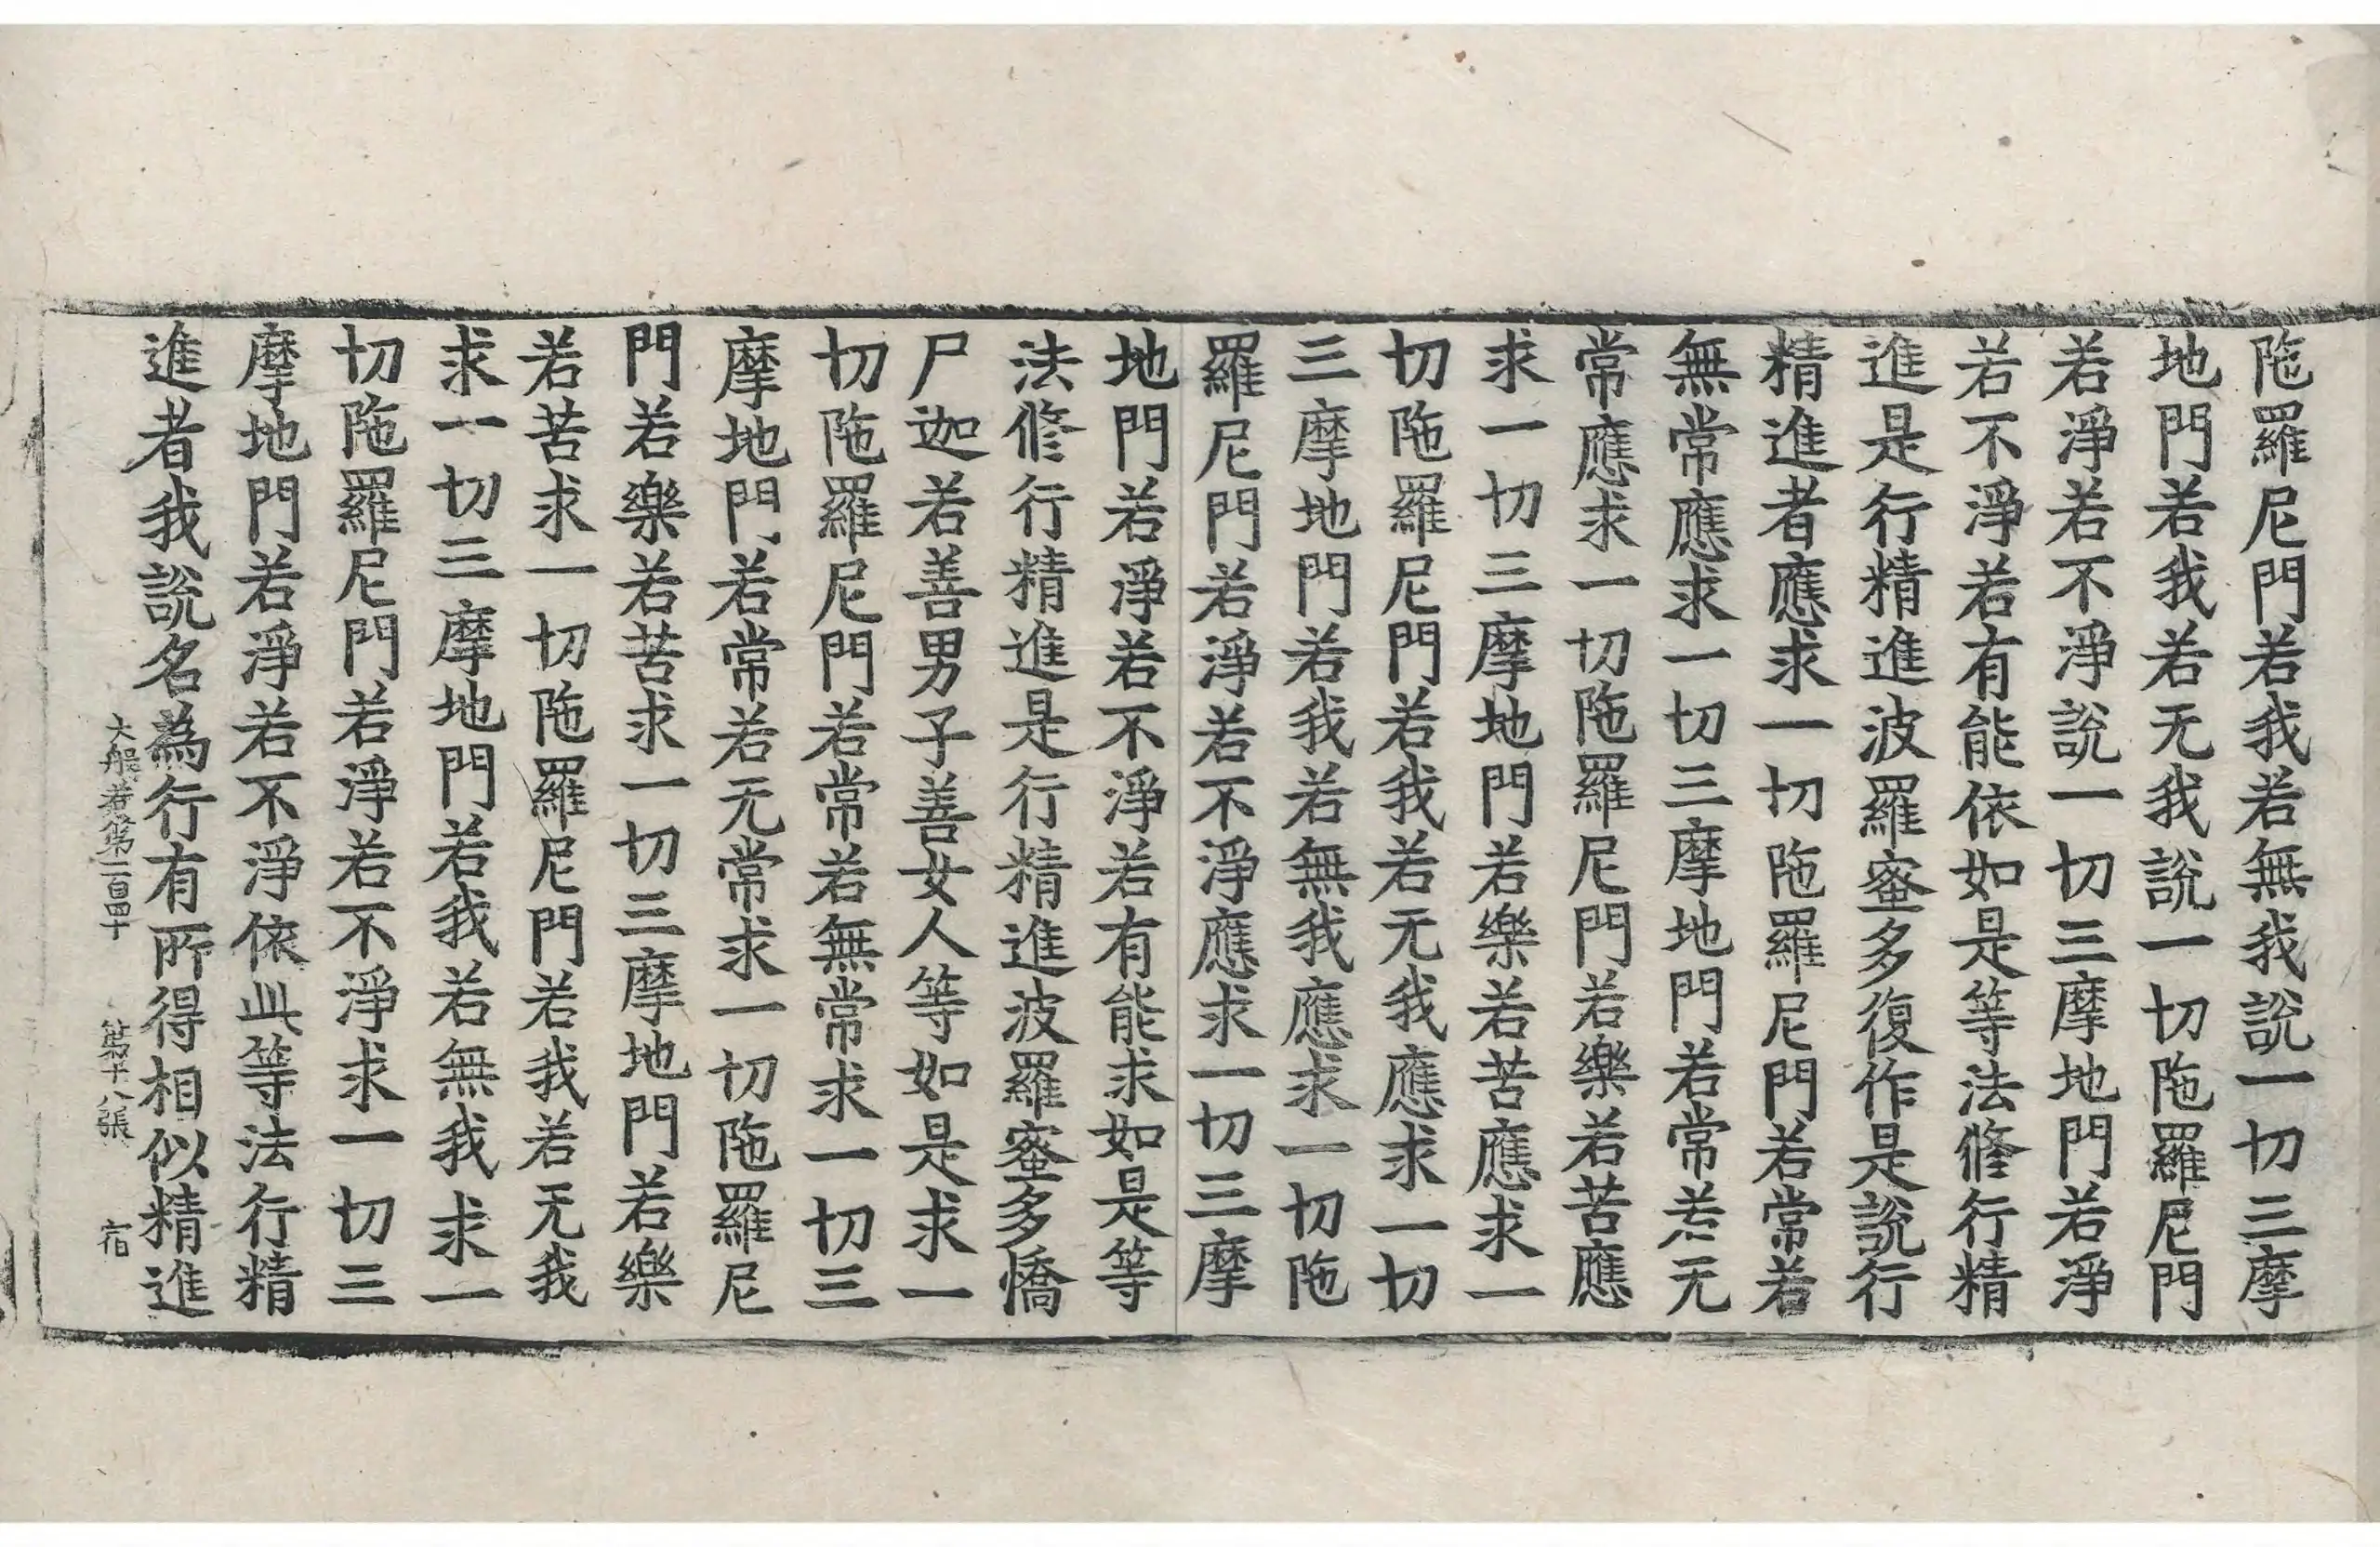 陁羅尼門若我若無我說一切三摩
地門若我若无我說一切陁羅尼門
若淨若不淨說一切三摩地門若淨
若不淨若有能依如是等法修行精
進是行精進波羅蜜多復作是說行
精進者應求一切陁羅尼門若常若
無常應求一切三摩地門若常若无
常應求一切陁羅尼門若樂若苦應
求一切三摩地門若樂若苦應求一
切陁羅尼門若我若无我應求一切
三摩地門若我若無我應求一切陁
羅尼門若淨若不淨應求一切三摩
地門若淨若不淨若有能求如是等
法修行精進是行精進波羅蜜多憍
尸迦若善男子善女人等如是求一
切陁羅尼門若常若無常求一切三
摩地門若常若无常求一切陁羅尼
門若樂若苦求一切三摩地門若樂
若苦求一切陁羅尼門若我若无我
求一切三摩地門若我若無我求一
切陁羅尼門若淨若不淨求一切三
摩地門若淨若不淨依此等法行精
進者我說名為行有所得相似精進
大般若第一百四十 第十八張 宿